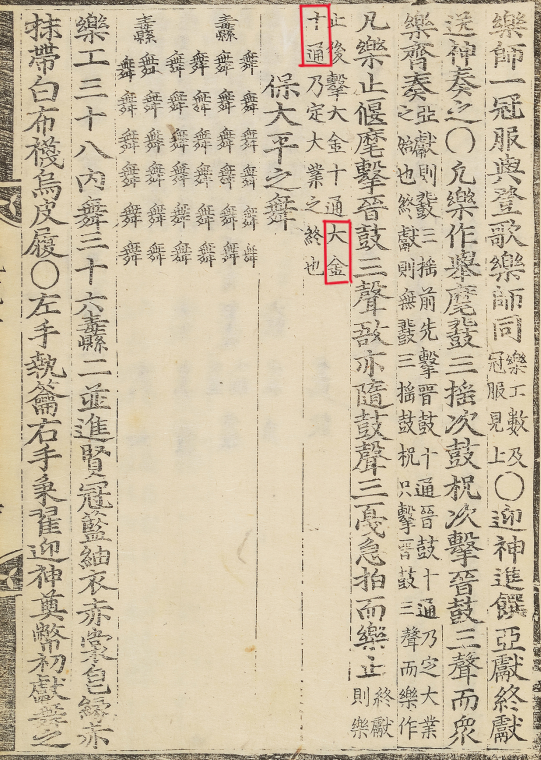 樂師一冠服與登歌樂師同樂工數及冠服見上○迎神進饌亞獻終獻
送神奏之○凡樂作擧麾鼗三搖次鼓柷次擊晉鼓三聲而衆
樂齊奏亞獻則鼗三搖前先擊晉鼓十通晉鼓十通乃定大業之始也終獻則無鼗三搖鼓柷只擊晉鼓三聲而樂作
凡樂止偃麾擊晉鼓三聲敔亦隨鼓聲三戛急拍而樂止終獻則樂
止後擊大金十通大金十通乃定大業之終也
保大平之舞
舞舞舞舞舞舞
纛
舞舞舞舞舞舞
舞舞舞舞舞舞
舞舞舞舞舞舞
纛
舞舞舞舞舞舞
舞舞舞舞舞舞
樂工三十八內舞三十六纛二並進賢冠藍紬衣赤裳皀縁赤
抹帶白布襪烏皮履○左手執籥右手秉翟迎神奠幣初獻舞之